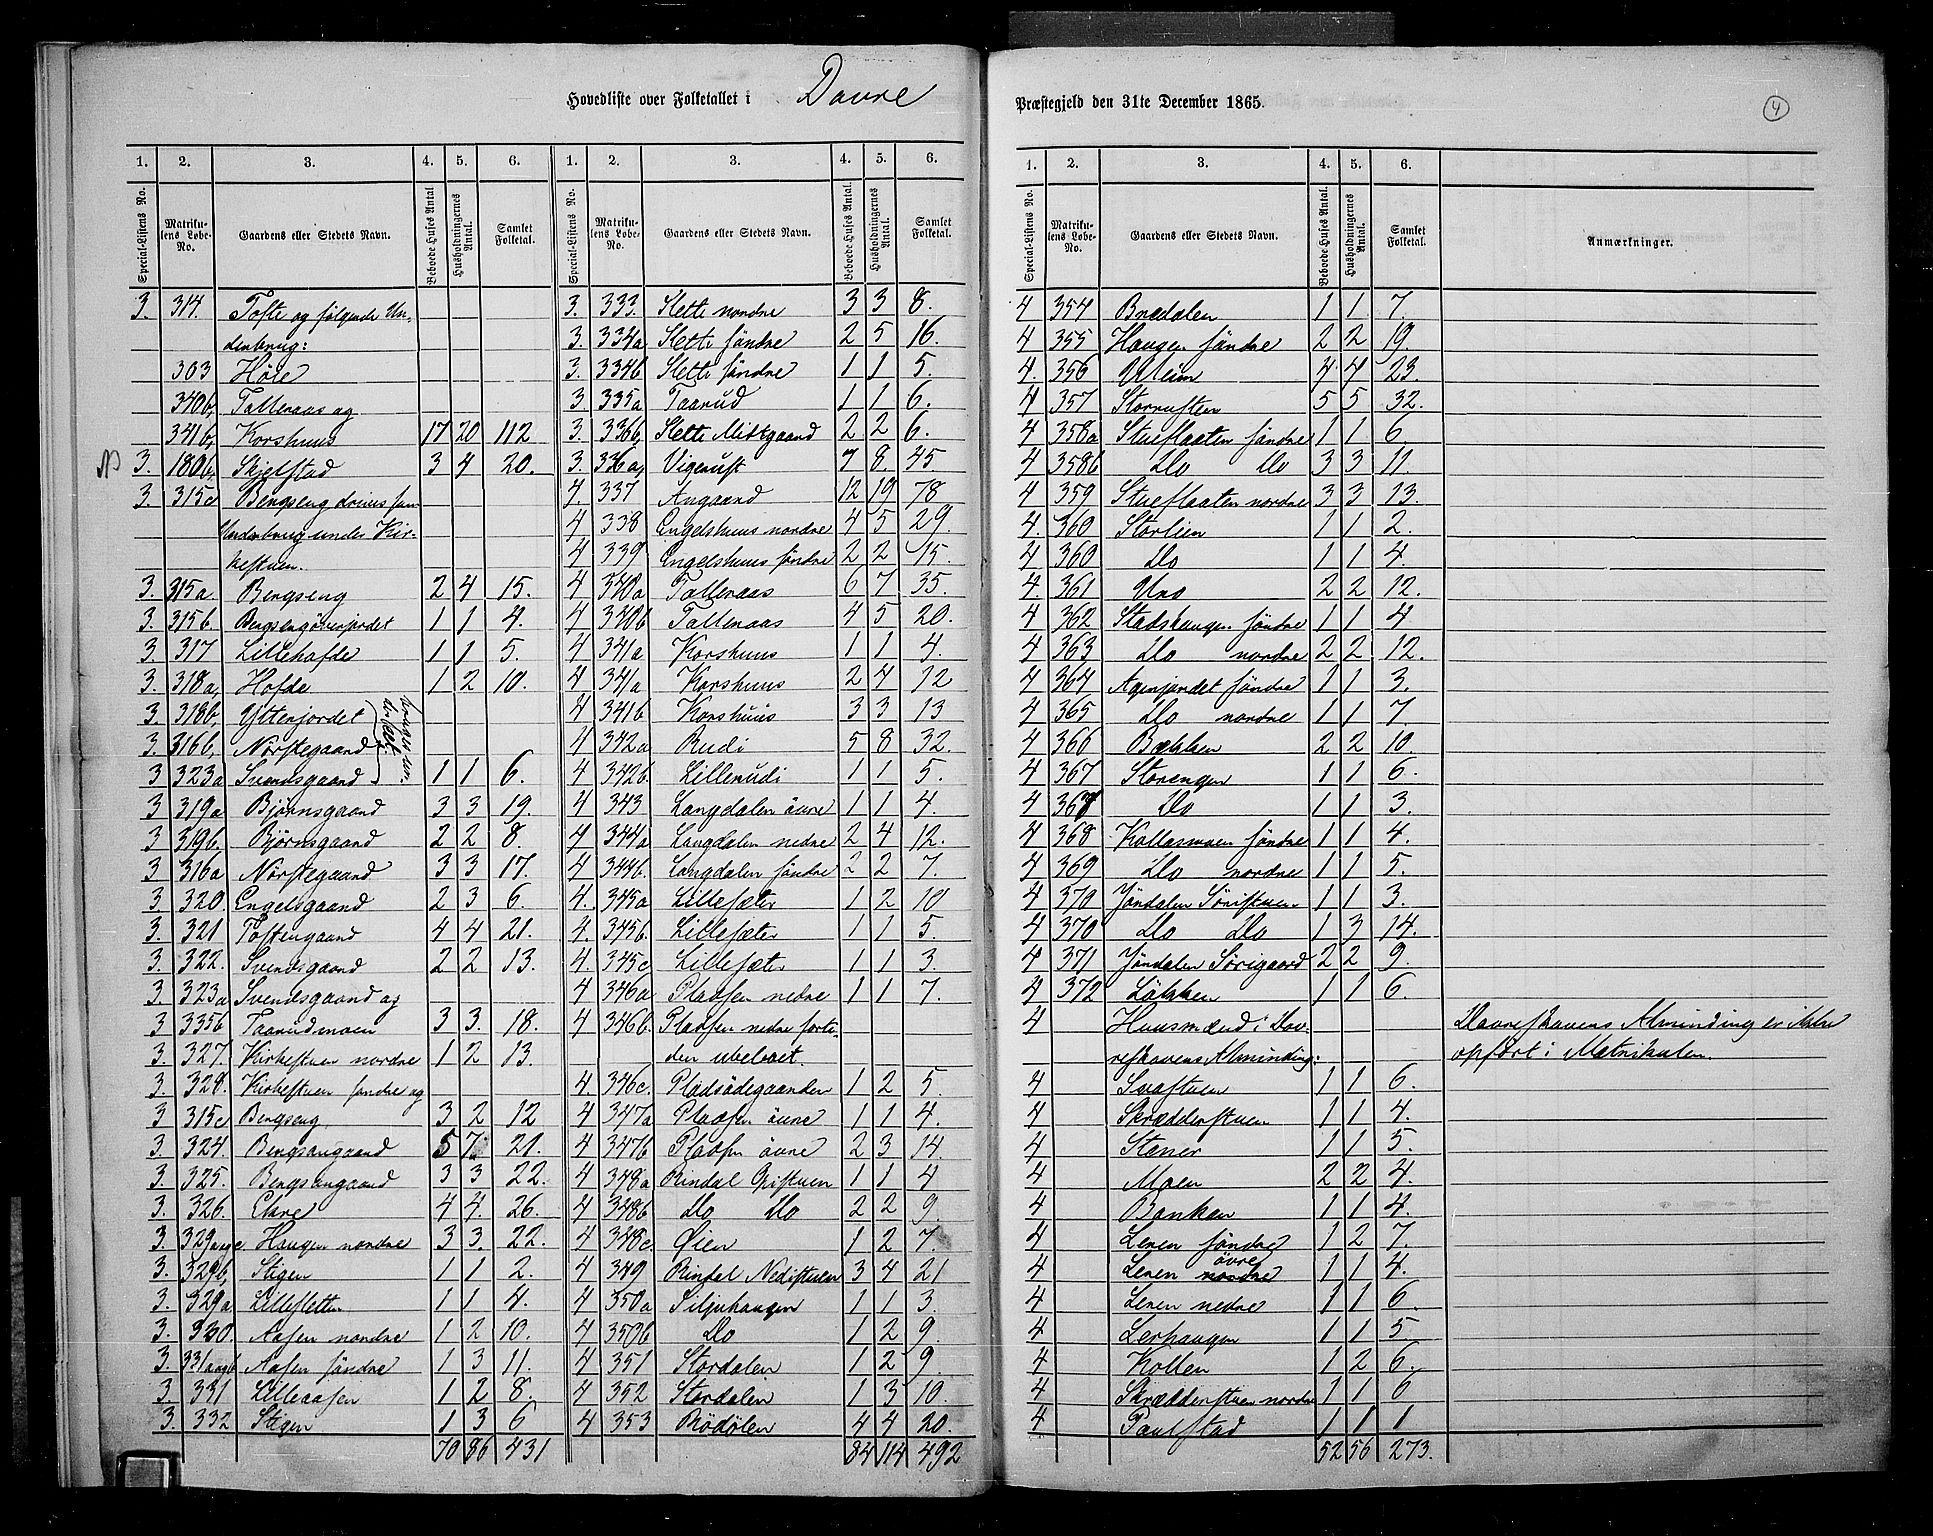 Hovedliste over Folketallet i Dovre Præstegjeld den 31te December 1865.
4
1. 2. 3. 4. 5. 6. 1. 2. 3. 4. 5. 6.
Special-Listens No. Matrikulens Løbe-No. Gaardens eller Stedets Navn. Beboede Huses Antal. Husholdningernes Antal. Samlet Folketal. Special-Listens No. Matrikulens Løbe-No. Gaardens eller Stedets Navn. Beboede Huses Antal. Husholdningernes Antal. Samlet Folketal.
3. 314. Tofte og følgende Un-
derbrug:
303 Hole
340b, Talleraas og
341b, Korshuus 17 20 112
3. 180b, Skjelstad 3 4 20.
3. 315c Bergseng drives som
Underbrug under Kir-
kestuen.
3. 315a Bergseng 2 4 15.
3. 315b. Bergsengöverjordet 1 1 4.
3. 317 Lillehofde 1 1 5.
3. 318a, Hofde 1 2 10.
3. 318b, Ytterjordet
3. 316b, Nørstegaard
3 323a Svendsgaard 1 1 6.
3 319a Bjørnsgaard 3 3 19.
3 319b. Bjørnsgaard 2 2 8.
3 316a Nørstegaard 3 3 17.
3 320 Engelsgaard 2 3 6.
3. 321 Toftengaard 4 4 21.
3. 322. Svendsgaard 2 2 13.
3. 323a Svendsgaard og
3 335b Taarudmoen 3 3. 18.
3. 327. Kirkestuen nordre 1 2 13.
3. 328. Kirkestuen søndre og
3 315c Bergseng 3 2 12
3. 324. Bergsangaard 5 7 21.
3. 325. Bergsangaard 3 3 22.
3. 326. Ekre 4 4. 26.
3. 329 Haugen nordre 3 3. 22.
3. 329b, Stigen 1 1 2.
3. 329a Lillesletten 1 1 4.
3. 330. Aasen nordre 1 2 10.
3. 331 Aasen søndre 1 3 11.
3. 331 Lilleaasen 1 2 8.
3. 332 Stigen 1 3 6
70 86 431
3. 333. Slette nordre 3 3 8.
3. 334a Slette söndre 2 5 16.
3. 334b Slette söndre 1 1 5.
3. 335a Taarud 1 1 6.
3. 336b, Slette Midtgaard 2 2 6.
3. 336a, Vigerust 7 8. 45
4. 337 Angaard 12 19 78
4 338 Engelshuus nordre 4 5 29.
4 339 Engelshuus søndre 2 2 15.
4 340a Talleraas 6 7 35.
4 340b Talleraas 4 5 20.
4 341a Korshuus 1 1 4.
4 341a Korshuus 2 4 12
4 341b Korshuus 3 3 13
4 342a Rudi 5 8 32.
4 342b. Lillerudi 1 1 5.
4 343 Langdalen övre 1 1 4.
4 344a Langdalen nedre 2 4 12.
4 344b. Langdalen söndre 2 2 7.
4. 345a Lillesæter 1 2 10
4. 345b. Lillesæter 1 1 5.
4. 345c Lillesæter 1 1 3.
4 346a Pladsen nedre 1 1 7.
4 346b. Pladsen nedre forti-
den ubeboet.
4 346c. Pladsödegaarden 1 2 5.
4 347a Pladsen övre 1 1 4.
4 347b Pladsen övre 2 3 14.
4 348a Rindal Opistuen 1 1 4
4 348b Do Do 2 2 9
4 348c. Øien 1 2 7.
4 349 Rindal Nedistuen 3 4 21
4 350a Siljuhaugen 1 1 3.
4 350b Do 1 2 9.
4 351 Stordalen 1 2 9.
4 352 Stordalen 1 3 10.
4 353 Brödölen 4 4 20.
84 114 492
1. 2. 3. 4. 5. 6.
Special-Listens No. Matrikulens Løbe-No. Gaardens eller Stedets Navn. Beboede Huses Antal. Husholdningernes Antal. Samlet Folketal. Anmærkninger.
4 354 Brædalen 1 1 7.
4 355 Haugen söndre 2 2 19
4. 356 Ulein 4 4 23.
4 357 Storrusten 5 5 32.
4 358a Stueflaaten söndre 1 1 6
4 358b Do Do 3 3 11.
4 359 Stueflaaten nordre 3 3 13.
4. 360 Storlien 1 1 2.
4 360 Do 1 1 4.
4. 361 Uro 2 2 12.
4 362 Stadshaugen söndre 1 1 4
4 363 Do nordre 2 2 12.
4 364 Agerjordet söndre 1 1 3.
4 365 Do nordre 1 1 7.
4 366 Bækken 2 2 10.
4 367 Storengen 1 1 6.
4 367 Do 1 1 3.
4 368 Kollasmoen söndre 1 1 4.
4 369 Do nordre 1 1 5.
4 370 Jöndalen Söristuen 1 1 3.
4 370 Do Do 1 3 14.
4 371 Jöndalen Sörigaard 2 2 9.
4 372 Lökken 1 1 6.
4 Huusmænd i Dov- Dovreskovens Alminding er ikke
reskovens Alminding: opfört i Matrikulen.
4 Svastuen 1 1 6.
4 Skrædderstuen 1 1 4.
4 Stæner 1 1 5.
4 Moen 2 2 4.
4 Banken 1 1 4.
4 Leren söndre 1 2 7.
4 Leren nordre övre 1 1 4.
4 Leren nedre 1 1 6.
4 Lerhaugen 1 1 5
4 Kollen 1 2 6.
4 Skrædderstuen nordre 1 1 6
4 Paulstad 1 1 1
52 56 273.